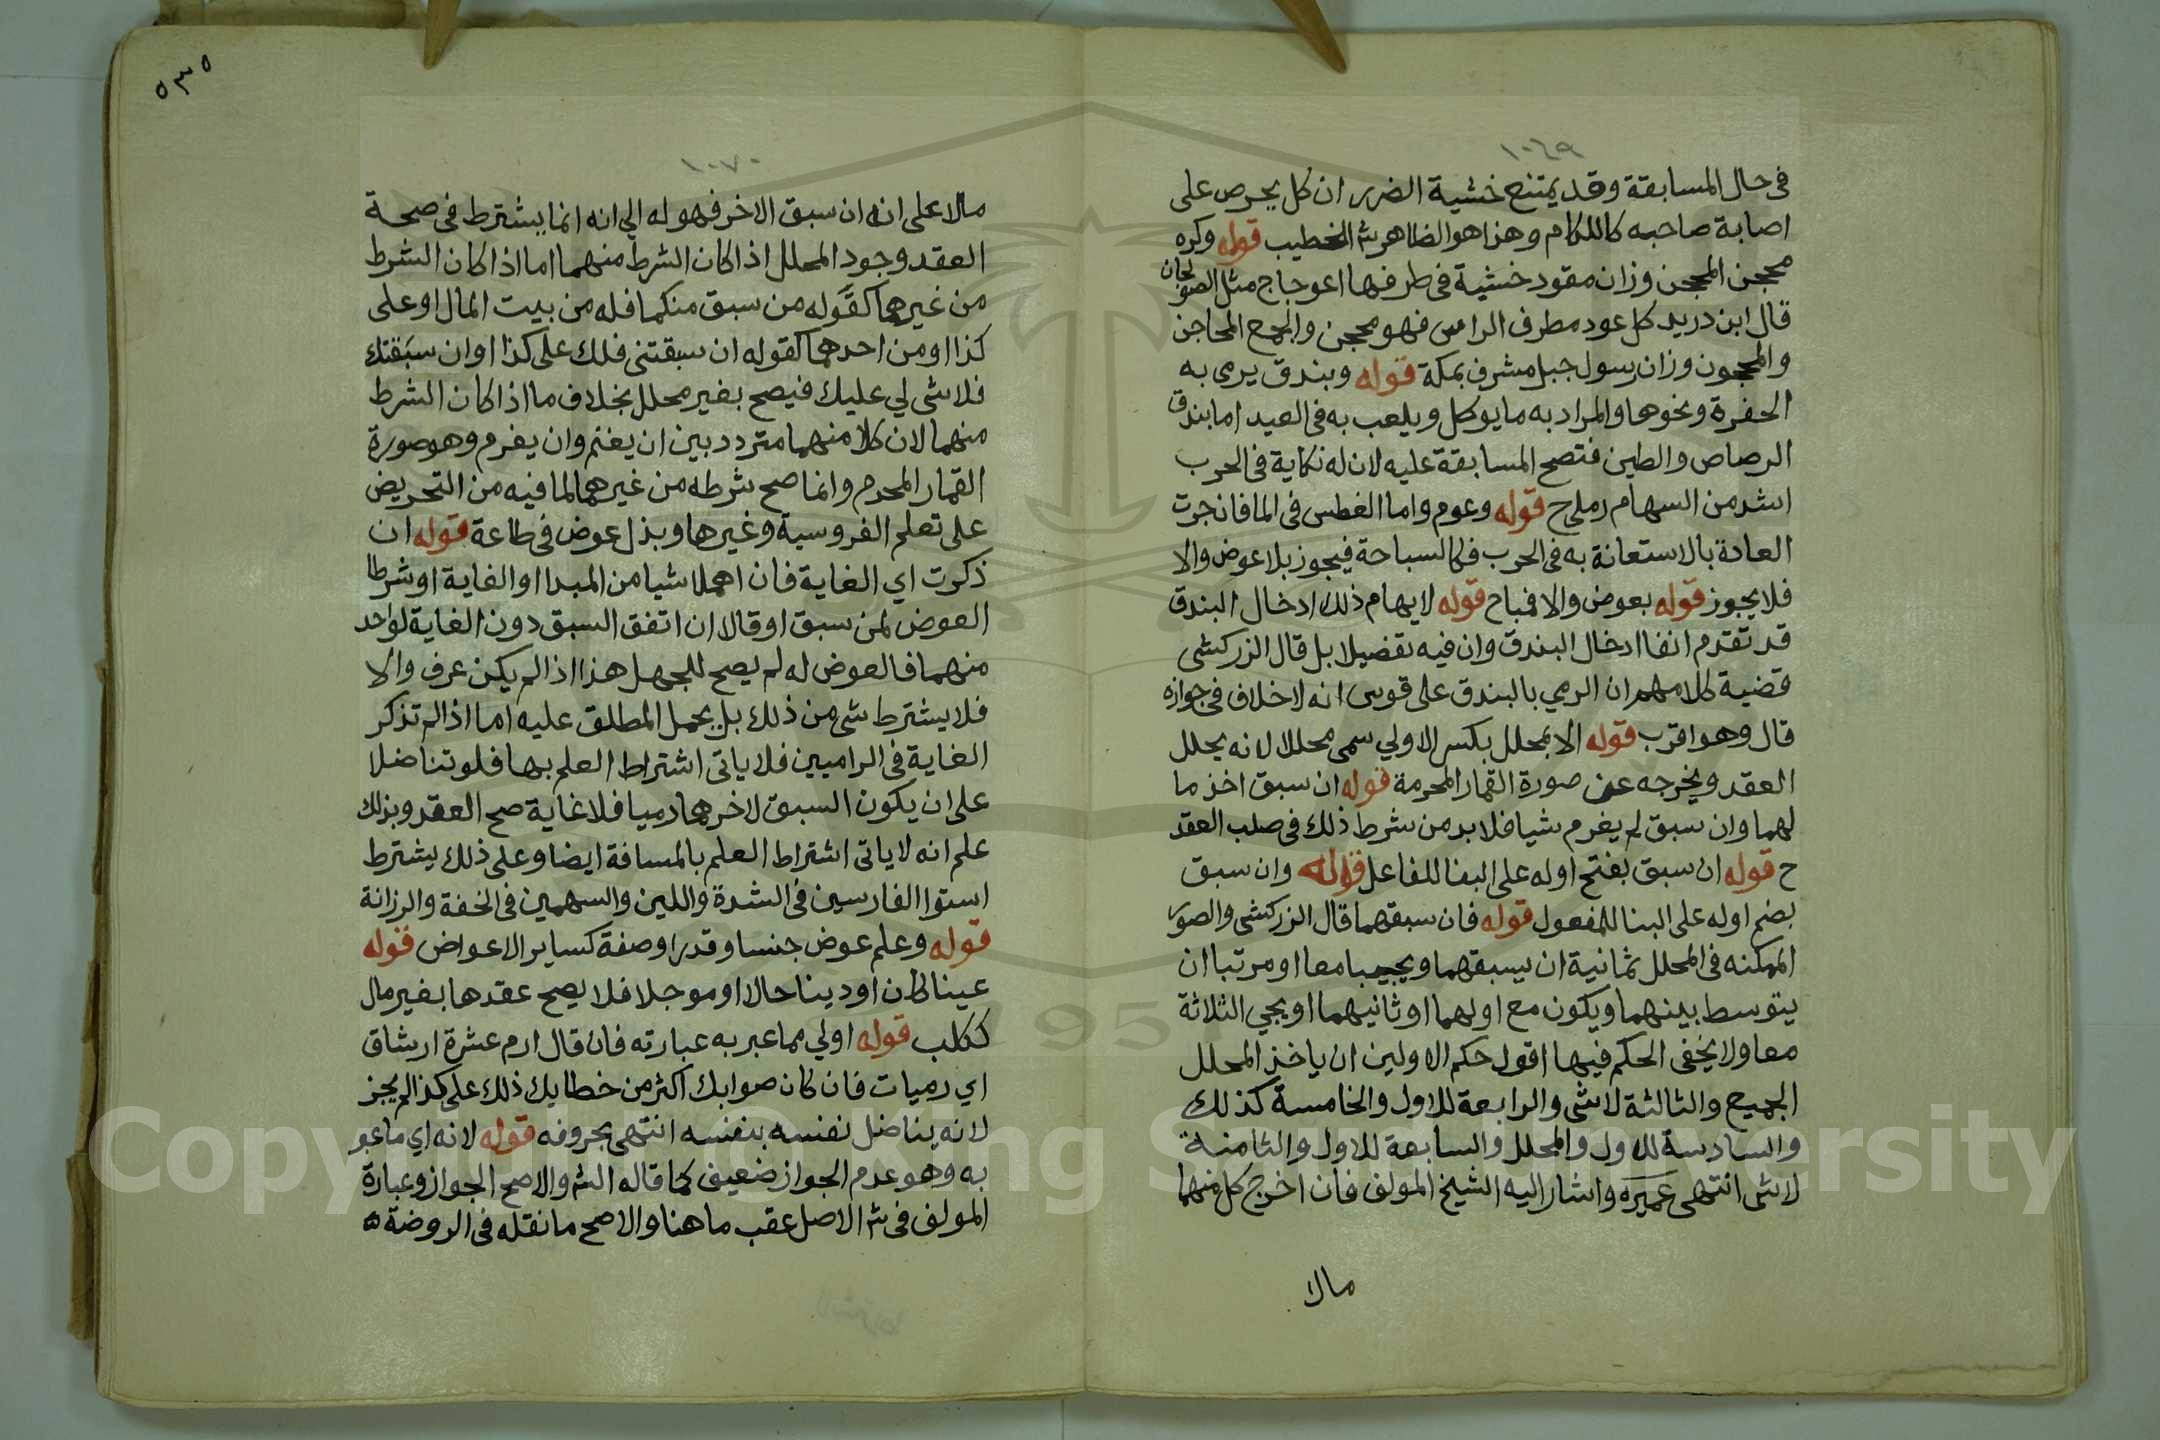 ١٠٦٩
في حال المسابقة وقد يمتنع خشية الضرر ان كل يحرص على
اصابة صاحبه كاللكام وهذا هو الظاهر شر الخطيب قوله وكره
محجن المحجن وزان مقود خشبة في طرفها اعوجاج مثل الصولجان
قال ابن دريد كل عود مطرف الراس فهو محجن والجمع المحاجن
والمحجون وزان رسول جبل مشرف بمكة قوله وبندق يرمى به
الحفرة ونحوها والمراد به ما يوكل ويلعب به في العيد اما بندق
الرصاص والطين فتصح المسابقة عليه لان له نكاية في الحرب
اشد من السهام رملي ح قوله وعوم واما الغطس في الما فان جرت
العادة بالاستعانة به في الحرب فكالسباحة فيجوز بلا عوض والا
فلا يجوز قوله بعوض والا فمباح قوله لايهام ذلك ادخال البندق
قد تقدم انفا ادخال البندق وان فيه تفضيلا بل قال الزركشي
قضية كلامهم ان الرمي بالبندق على قوس انه لا خلاف في جوازه
قال وهو اقرب قوله الا بمحلل بكسر الاولي سمى محللا لانه يحلل
العقد ويخرجه عن صورة القمار المحرمة قوله ان سبق اخذ ما
لهما وان سبق لم يغرم شيا فلا بد من شرط ذلك في صلب العقد
ح قوله ان سبق بفتح اوله على البنا للفاعل قوله وان سبق
بضم اوله على البنا للمفعول قوله فان سبقهما قال الزركشي والصور
الممكنه في المحلل ثمانية ان يسبقهما ويجيبا معا او مرتبا ان
يتوسط بينهما ويكون مع اولهما او ثانيهما او يجي الثلاثة
معا ولا يخفى الحكم فيها اقول حكم الاولين ان ياخذ المحلل
الجميع والثالثة لاشى والرابعة للاول والخامسة كذلك
والسادسة للاول والمحلل والسابعة للاول والثامنة
لاشى انتهى عميرة واشار اليه الشيخ المولف فان اخرج كل منهما
مالا
٥٣٥
١٠٧٠
مالا على انه ان سبق الاخر فهو له الي انه انما يشترط في صحة
العقد وجود المحلل اذا كان الشرط منهما اما اذا كان الشرط
من غيرهما كقوله من سبق منكما فله من بيت المال او على
كذا او من احدهما كقوله ان سبقتني فلك على كذا او ان سبقتك
فلا شى لي عليك فيصح بغير محلل بخلاف ما اذا كان الشرط
منهما لان كلا منهما متردد بين ان يغنم وان يغرم وهو صورة
القمار المحرم وانما صح شرطه من غيرهما لما فيه من التحريض
على تعلم الفروسية وغيرها وبذل عوض في طاعة قوله ان
ذكرت اي الغاية فان اهملا شيا من المبدا او الغاية او شرطا
العوض لمن سبق او قالا ان اتفق السبق دون الغاية لواحد
منهما فالعوض له لم يصح للجهل هذا اذا لم يكن عرف والا
فلا يشترط شى من ذلك بل يحمل المطلق عليه اما اذا لم تذكر
الغاية في الراميين فلا ياتى اشتراط العلم بها فلو تناضلا
على ان يكون السبق لاخرهما رميا فلا غاية صح العقد وبذلك
علم انه لا ياتى اشتراط العلم بالمسافة ايضا وعلى ذلك يشترط
استوا الفارسين في الشدة واللين والسهمين في الخفة والرزانة
قوله وعلم عوض جنسا وقدرا وصفة كساير الاعواض قوله
عينا كان او دينا حالا او موجلا فلا يصح عقدها بغير مال
ككلب قوله اولي مما عبر به عبارته فان قال ارم عشرة ارشاق
اي رميات فان كان صوابك اكثر من خطايك ذلك على كذا لم يجز
لانه يناضل نفسه بنفسه انتهى بحروفه قوله لانه اي ما عبر
به وهو عدم الجواز ضعيف كما قاله الشر والاصح الجواز وعبارة
المولف في شر الاصل عقب ما هنا والاصح ما نقله في الروضة ه
Copyright © King Saud University